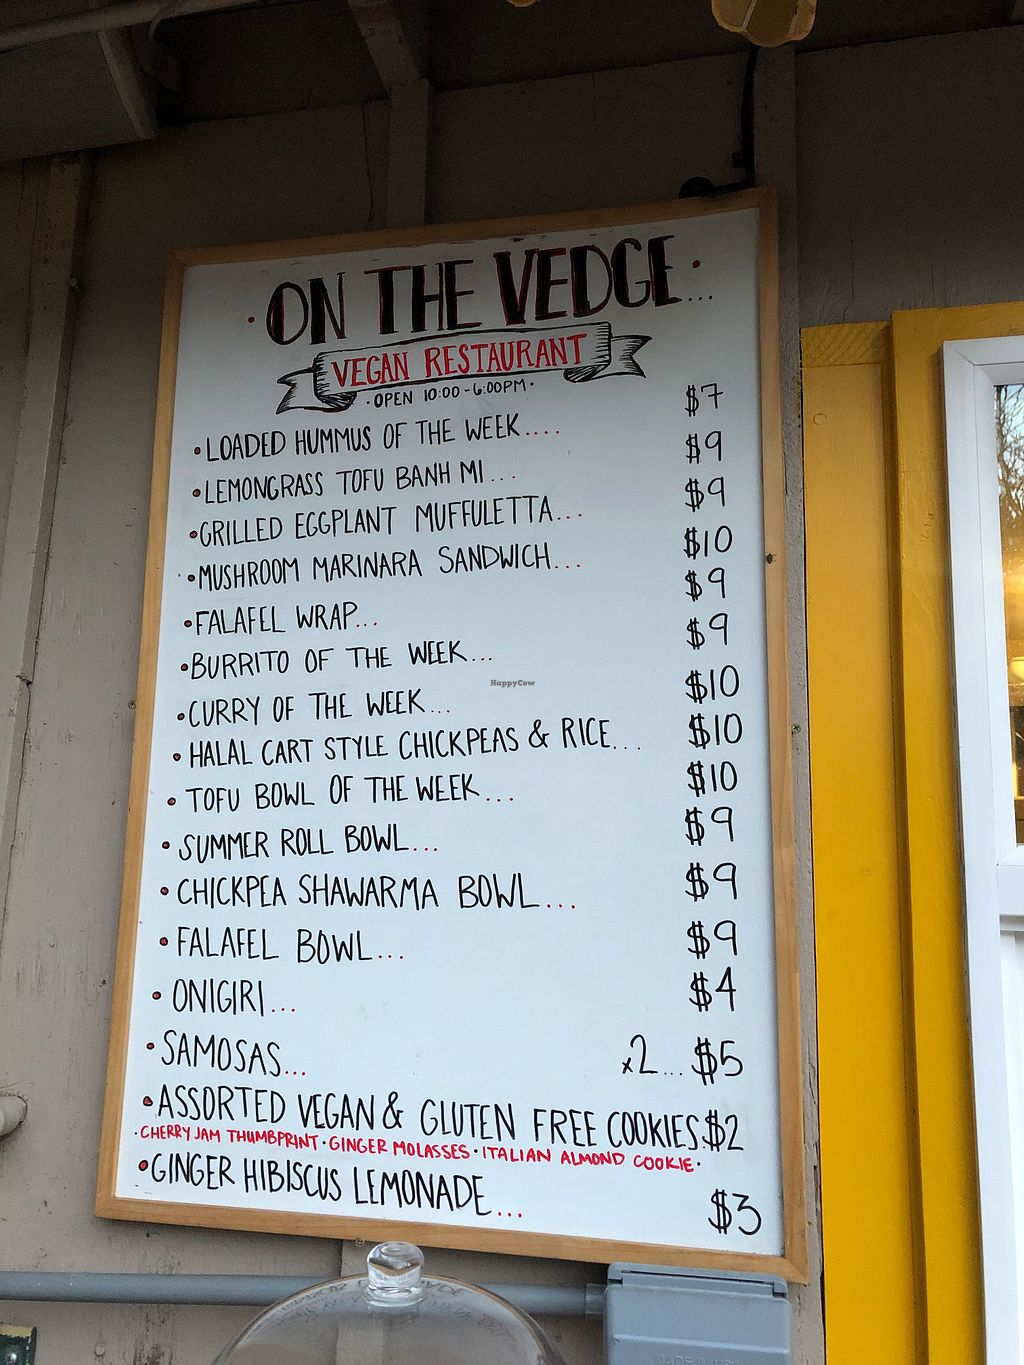 ON THE VEDGE...
VEGAN RESTAURANT
·OPEN 10:00-6:00PM·
•LOADED HUMMUS OF THE WEEK.... $7
•LEMONGRASS TOFU BANH MI... $9
•GRILLED EGGPLANT MUFFULETTA... $9
•MUSHROOM MARINARA SANDWICH... $10
•FALAFEL WRAP... $9
•BURRITO OF THE WEEK... $9
•CURRY OF THE WEEK... $10
•HALAL CART STYLE CHICKPEAS & RICE... $10
•TOFU BOWL OF THE WEEK... $10
•SUMMER ROLL BOWL... $9
•CHICKPEA SHAWARMA BOWL... $9
•FALAFEL BOWL... $9
•ONIGIRI... $4
•SAMOSAS... x2... $5
•ASSORTED VEGAN & GLUTEN FREE COOKIES: $2
·CHERRY JAM THUMBPRINT·GINGER MOLASSES·ITALIAN ALMOND COOKIE·
•GINGER HIBISCUS LEMONADE... $3
HappyCow